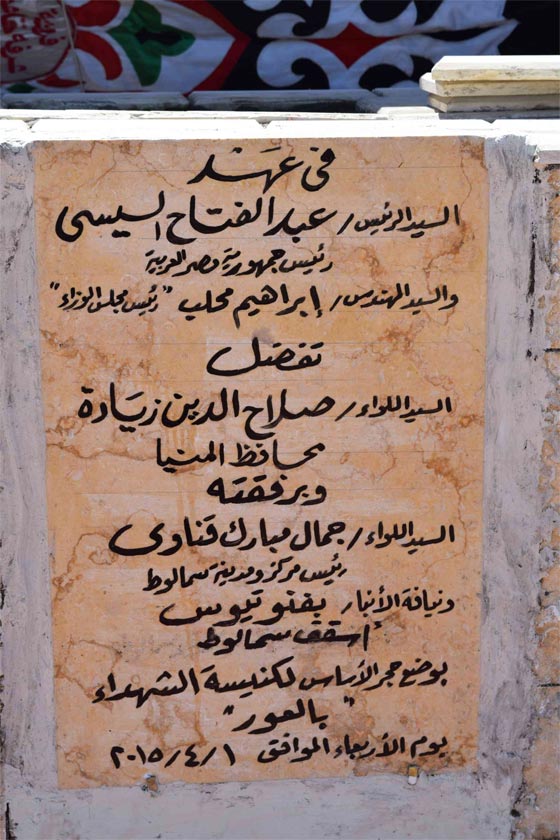 فى عهد
السيد الرئيس / عبد الفتاح السيسى
رئيس جمهورية مصر العربية
والسيد المهندس / إبراهيم محلب "رئيس مجلس الوزراء"
تفضل
السيد اللواء / صلاح الدين زيادة
محافظ المنيا
وبرفقته
السيد اللواء / جمال مبارك قناوى
رئيس مركز ومدينة سمالوط
ونيافة الأنبا / بفنوتيوس
أسقف سمالوط
بوضع حجر الأساس لكنيسة الشهداء
"بالعور"
يوم الأربعاء الموافق ٢٠١٥/٤/١